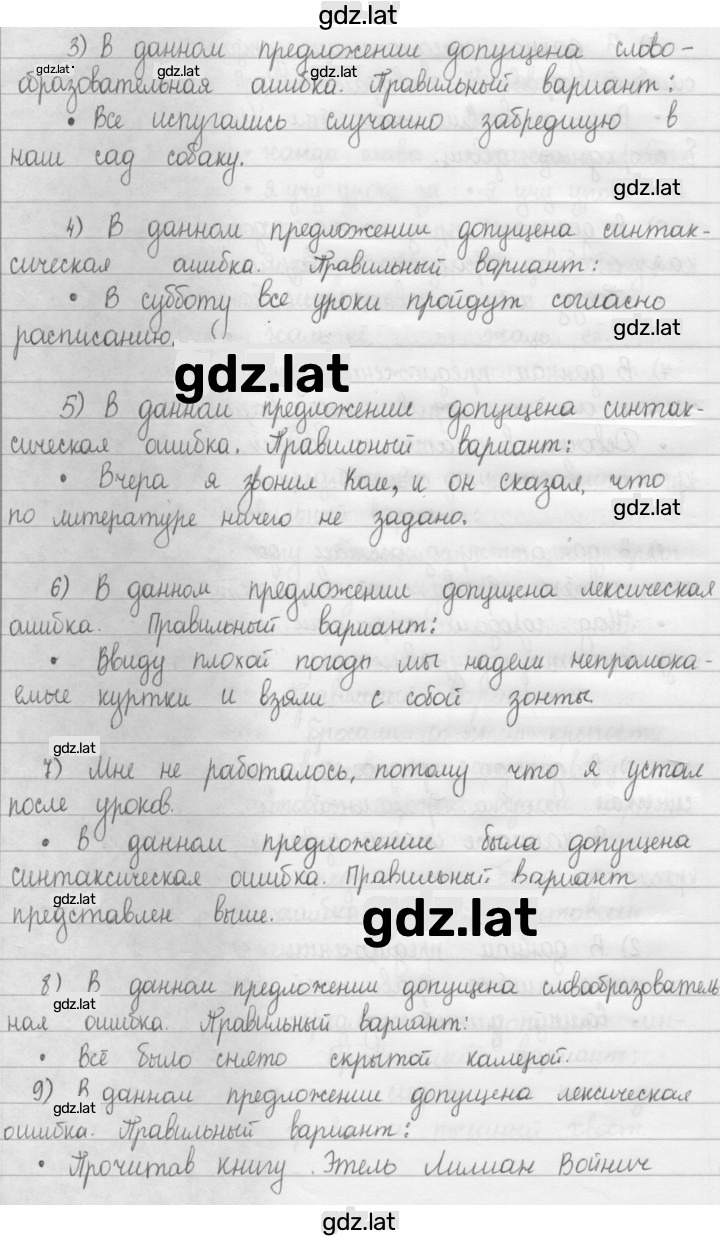 gdz.lat
3) В данном предложении допущена слово-
gdz.lat
gdz.lat
gdz.lat
образовательная ошибка. Правильный вариант:
• Все испугались случайно забредшую в
наш сад собаку.
gdz.lat
4) В данном предложении допущена синтак-
сическая ошибка. Правильный вариант:
• В субботу все уроки пройдут согласно
расписанию.
gdz.lat
5) В данном предложении допущена синтак-
сическая ошибка. Правильный вариант:
• Вчера я звонил Коле, и он сказал, что
по литературе ничего не задано.
gdz.lat
6) В данном предложении допущена лексическая
ошибка. Правильный вариант:
• Ввиду плохой погоды мы надели непромока-
емые куртки и взяли с собой зонты
gdz.lat
7) Мне не работалось, потому что я устал
после уроков.
• В данном предложении была допущена
синтаксическая ошибка. Правильный вариант
gdz.lat
представлен выше.
gdz.lat
8) В данном предложении допущена словообразователь
gdz.lat
ная ошибка. Правильный вариант:
• Всё было снято скрытой камерой.
9) В данном предложении допущена лексическая
gdz.lat
ошибка. Правильный вариант:
• Прочитав книгу Этель Лилиан Войнич
gdz.lat